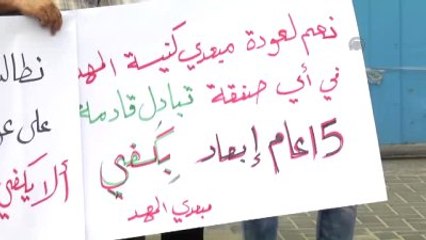 نعم لعودة مبعدي كنيسة المهد
في أي صفقة تبادل قادمة
15 عام إبعاد بِكفي
مبعدي المهد
نطالب
على عو
ألا يكفي